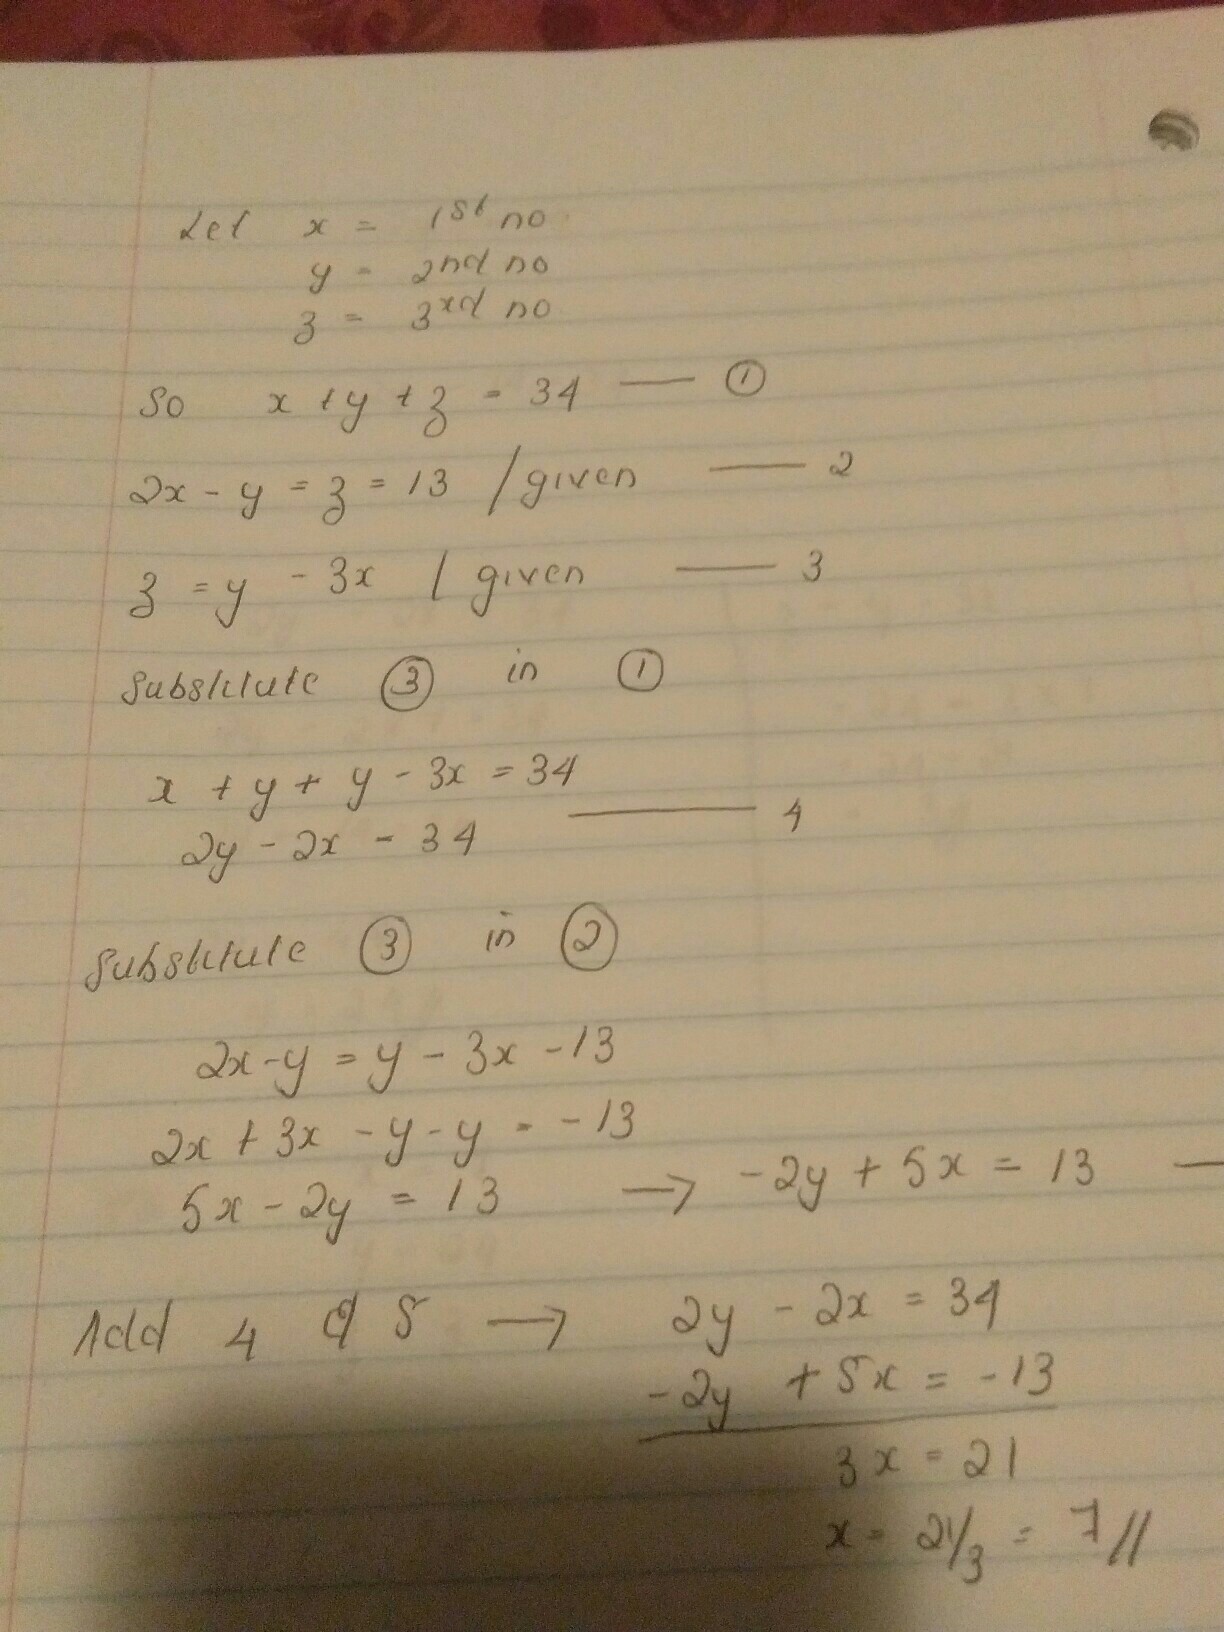 Let x = 1st no.
y = 2nd no
z = 3rd no
So x + y + z = 34 — ①
2x - y = z = 13 / given — 2
z = y - 3x / given — 3
Substitute ③ in ①
x + y + y - 3x = 34
2y - 2x = 34 — 4
Substitute ③ in ②
2x - y = y - 3x - 13
2x + 3x - y - y = -13
5x - 2y = 13 → -2y + 5x = 13 —
Add 4 & 5 → 2y - 2x = 34
-2y + 5x = -13
3x = 21
x = 21/3 = 7 //